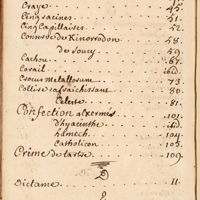 Craye. 45.
Cinq racines. 51.
Cinq Capillaires. 52.
Conserve de Kinorrodon 58.
de Soucy 59.
Cachou. 67.
Corail. ibid.
Crocus Metallorum 73
Collire rafraichissant 80
Celeste. 81.
Confection alkermes 101.
d'hyacinthe ibid.
hamech. 104.
Catholicon 105.
Crême de tartre. 109.
D
Dictame. 11.